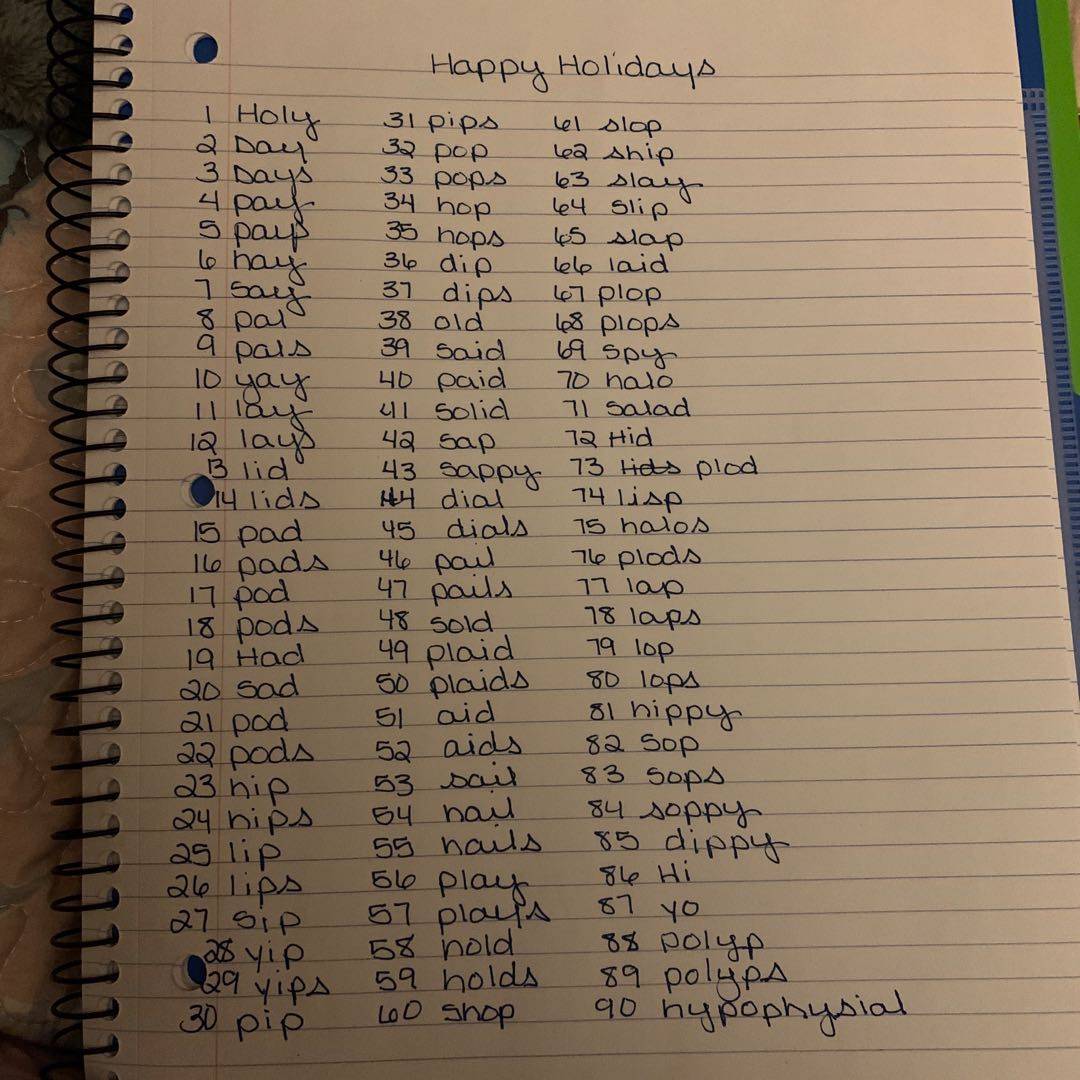 Happy Holidays
1 Holy
2 Day
3 Days
4 pay
5 pays
6 hay
7 say
8 pal
9 pals
10 yay
11 lay
12 lays
13 lid
14 lids
15 pad
16 pads
17 pod
18 pods
19 Had
20 sad
21 pod
22 pods
23 hip
24 hips
25 lip
26 lips
27 sip
28 yip
29 yips
30 pip
31 pips
32 pop
33 pops
34 hop
35 hops
36 dip
37 dips
38 old
39 said
40 paid
41 solid
42 sap
43 sappy
44 dial
45 dials
46 pail
47 pails
48 sold
49 plaid
50 plaids
51 aid
52 aids
53 sail
54 hail
55 hails
56 play
57 plays
58 hold
59 holds
60 shop
61 slop
62 ship
63 slay
64 slip
65 slap
66 laid
67 plop
68 plops
69 spy
70 halo
71 salad
72 Hid
73 plod
74 lisp
75 halos
76 plods
77 lap
78 laps
79 lop
80 lops
81 hippy
82 sop
83 sops
84 soppy
85 dippy
86 Hi
87 yo
88 polyp
89 polyps
90 hypophysial